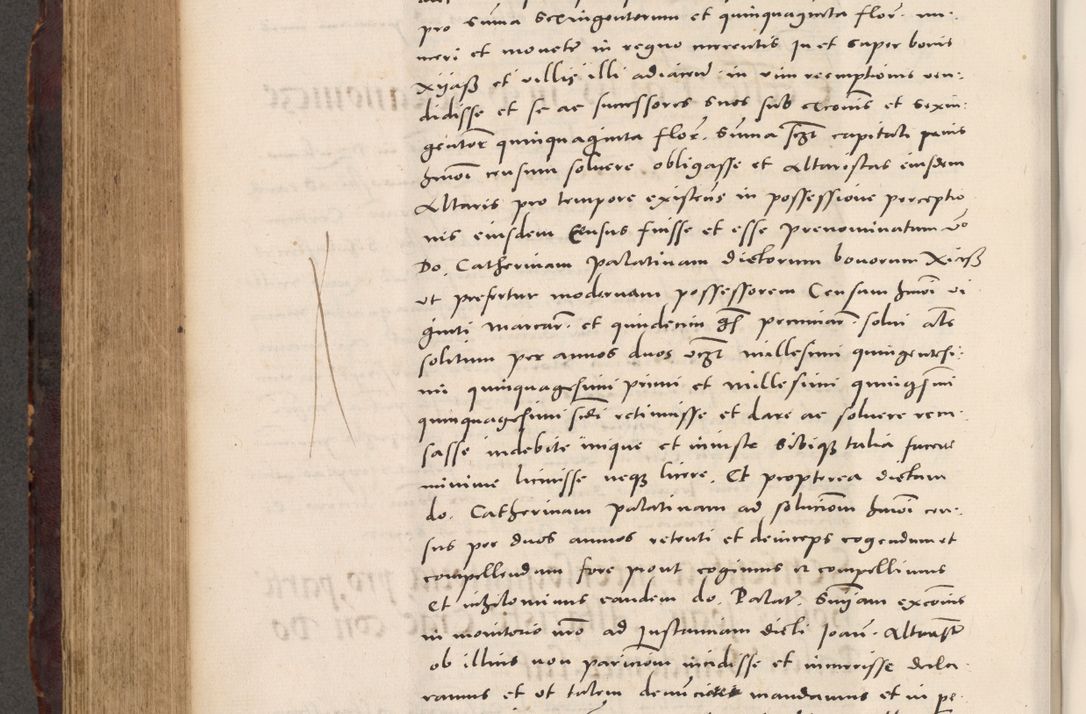 pro summa Sexingentorum et quinquaginta flor. nu-
meri et monete in regno currentis In et super bonis
Xijaß et villis illi adiacen. in vim reemptionis ven-
didisse et se ac successores suos sub exconis et sexin-
gentor quinquaginta flor. summa sczt capitali penis
hmoi censum soluere obligasse et Altaristas eiusdem
Altaris pro tempore existens in possessione perceptio
nis eiusdem Census fuisse et esse prenominatum vo
Do. Catherinam palatinam dictorum bonorum Xiaß
ut prefertur modernam possessorem Censum hmoi vi
ginti marcar. et quindecim gs pecuniar. solui als
solitum per annos duos vczt millesimi quingentesi-
mi quinquagesimi primi et millesimi quingsmi
quinquagesimi scdi retinuisse et dare ac soluere recu-
sasse indebite inique et iniuste Sibiqz talia facere
minime licuisse neqz licere. Et propterea dictam
do. Catherinam palatinam ad solucionem hmoi cen-
sus per duos annos retenti et deinceps cogendum et
compellendam fore prout cogimus et compellimus
Et nihilominus eandem do. Palat. Snĩam exconis
in monitorio nro ad Instantiam dicti Joan. Altariste
ob illius non paricionem incidisse et incurrisse decla-
ramus et ut talem denunciari mandamus et in pe-